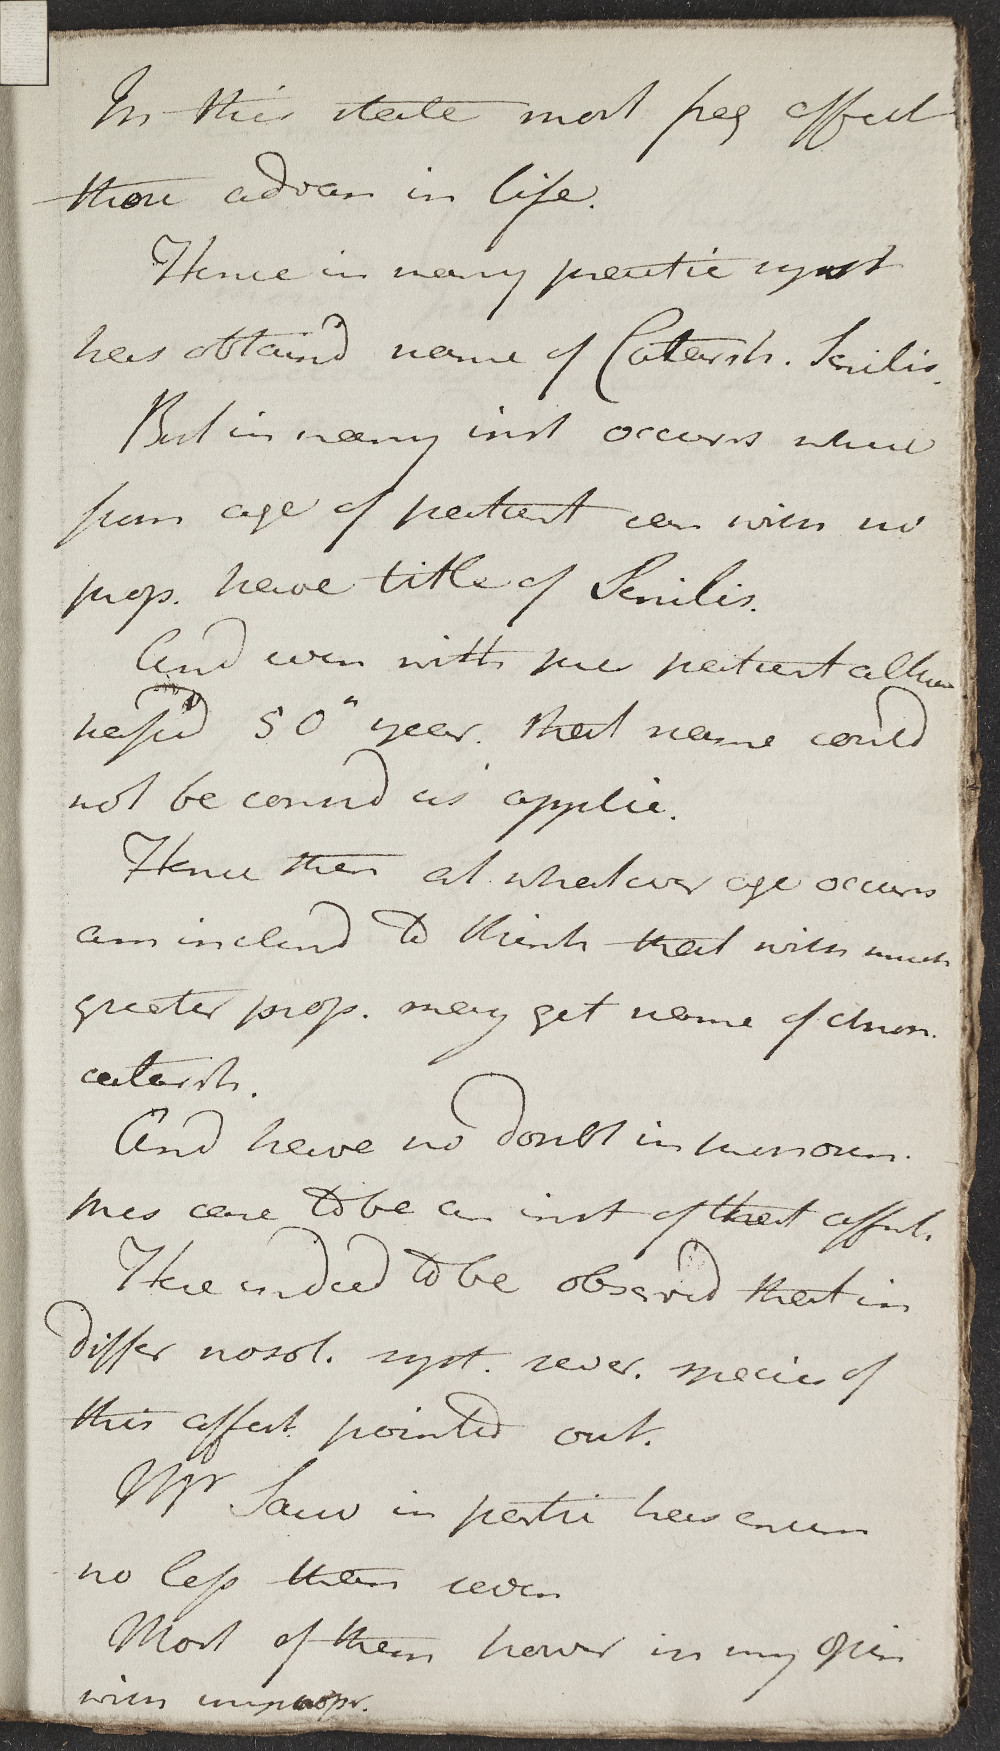 In this state most freq affect
those advan in life.
Hence in many practic syst
has obtain'd name of Catarrh. Senilis.
But in many inst occurs where
from age of patient can with no
prop. have title of Senilis.
And even with pres patient altho
has pas'd 50" year. that name could
not be consid as applic.
Hence then at whatever age occurs
am inclind to think that with much
greater prop. may get name of chron.
catarrh.
And have no doubt in pronoun.
pres case to be an inst of that affect.
Here indeed to be observ'd that in
differ nosol. syst. sever. species of
this affect. pointed out.
Mr Sauv in partic has enum
no less than seven
Most of them howev in my opin
with impropr.